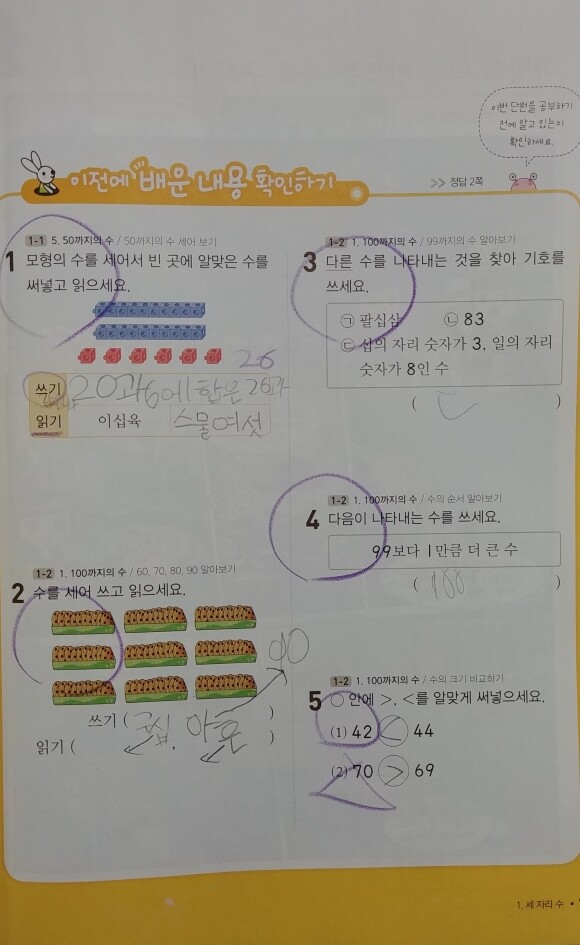 이번 단원을 공부하기
전에 알고 있는지
확인하세요.
이전에 배운 내용 확인하기
>> 정답 2쪽
1-1 5. 50까지의 수 / 50까지의 수 세어 보기
1 모형의 수를 세어서 빈 곳에 알맞은 수를
써넣고 읽으세요.
26
쓰기 20과 6에 합은 26과
읽기 이십육 스물여섯
1-2 1. 100까지의 수 / 60, 70, 80, 90 알아보기
2 수를 세어 쓰고 읽으세요.
90
쓰기 ( 구십, 아흔 )
읽기 ( )
1-2 1. 100까지의 수 / 99까지의 수 알아보기
3 다른 수를 나타내는 것을 찾아 기호를
쓰세요.
㉠ 팔십삼 ㉡ 83
㉢ 십의 자리 숫자가 3, 일의 자리
숫자가 8인 수
( ㄷ )
1-2 1. 100까지의 수 / 수의 순서 알아보기
4 다음이 나타내는 수를 쓰세요.
99보다 1만큼 더 큰 수
( 100 )
1-2 1. 100까지의 수 / 수의 크기 비교하기
5 ○ 안에 >, <를 알맞게 써넣으세요.
(1) 42 < 44
(2) 70 > 69
1. 세 자리 수 •